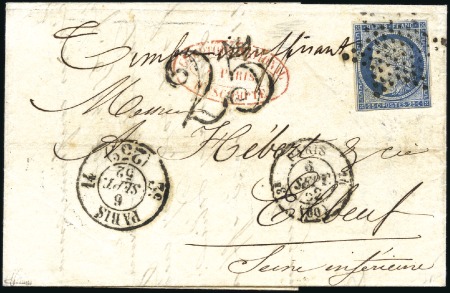 Timbre insuffisant
25
PARIS
Messieurs
A. Hébert & cie
Elbeuf
Seine inférieure
REPUB. FRANC.
25 C. POSTES 25 C.
PARIS
6
SEPT.
52
PARIS
6
SEPT.
52
(60)